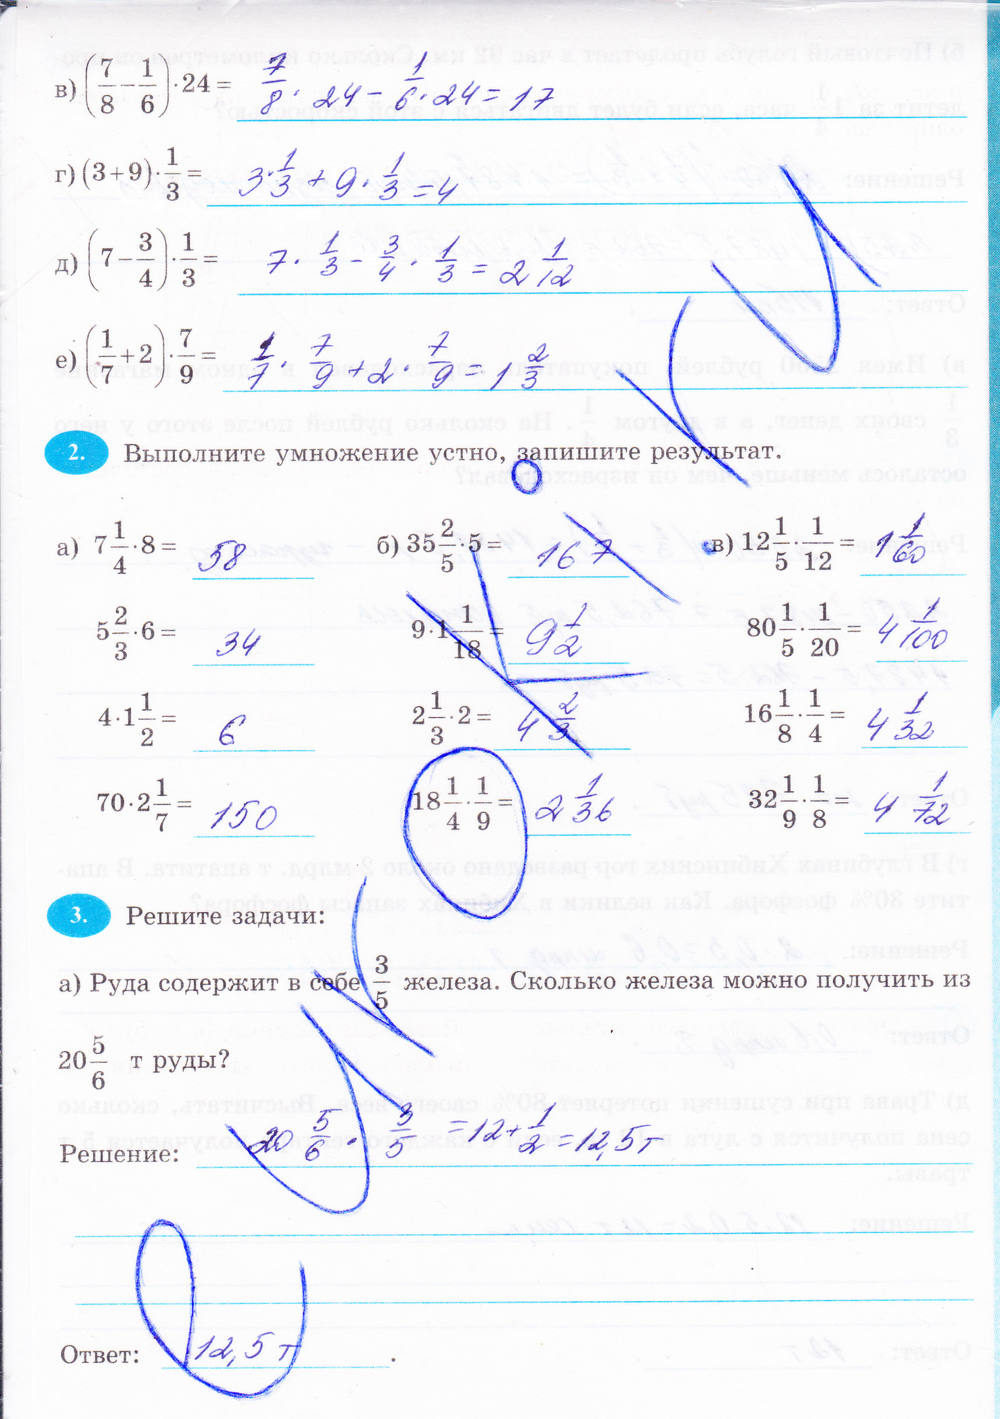 в) (7/8 − 1/6) · 24 = 7/8 · 24 − 1/6 · 24 = 17
г) (3 + 9) · 1/3 = 3 · 1/3 + 9 · 1/3 = 4
д) (7 − 3/4) · 1/3 = 7 · 1/3 − 3/4 · 1/3 = 2 1/12
е) (1/7 + 2) · 7/9 = 1/7 · 7/9 + 2 · 7/9 = 1 2/3
2. Выполните умножение устно, запишите результат.
а) 7 1/4 · 8 = 58 б) 35 2/5 · 5 = 167 в) 12 1/5 · 1/12 = 1 1/60
5 2/3 · 6 = 34 9 · 1 1/18 = 9 1/2 80 1/5 · 1/20 = 4 1/100
4 · 1 1/2 = 6 2 1/3 · 2 = 4 2/3 16 1/8 · 1/4 = 4 1/32
70 · 2 1/7 = 150 18 1/4 · 1/9 = 2 1/36 32 1/9 · 1/8 = 4 1/72
3. Решите задачи:
а) Руда содержит в себе 3/5 железа. Сколько железа можно получить из
20 5/6 т руды?
Решение: 20 5/6 · 3/5 = 12 + 1/2 = 12,5 т
Ответ: 12,5 т.